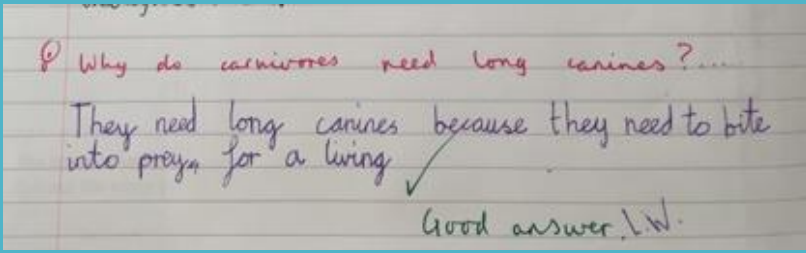 Why do carnivores need long canines?...
They need long canines because they need to bite
into prey. for a living
Good answer. L.W.